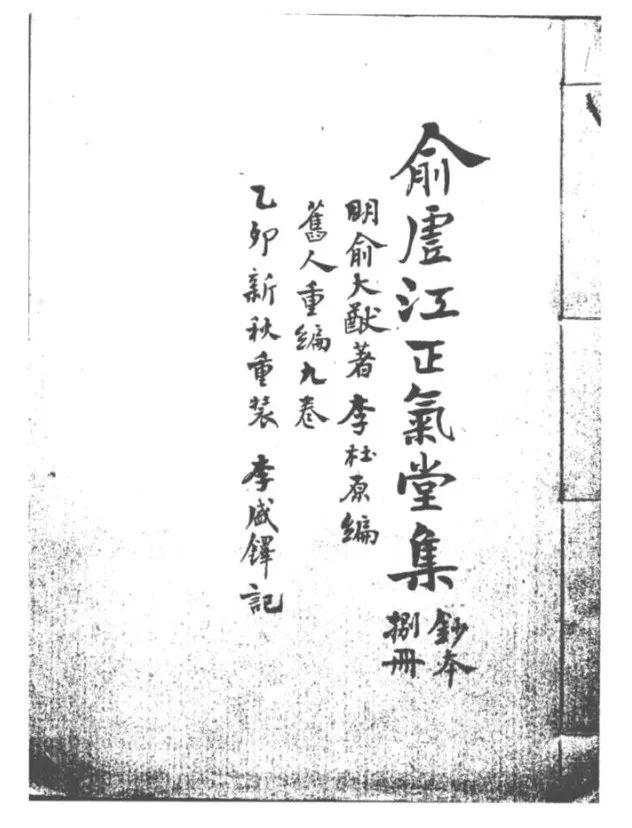 俞虛江正氣堂集
鈔本
捌冊
明俞大猷著李杜原編
舊人重編九卷
乙卯新秋重裝 李盛鐸記